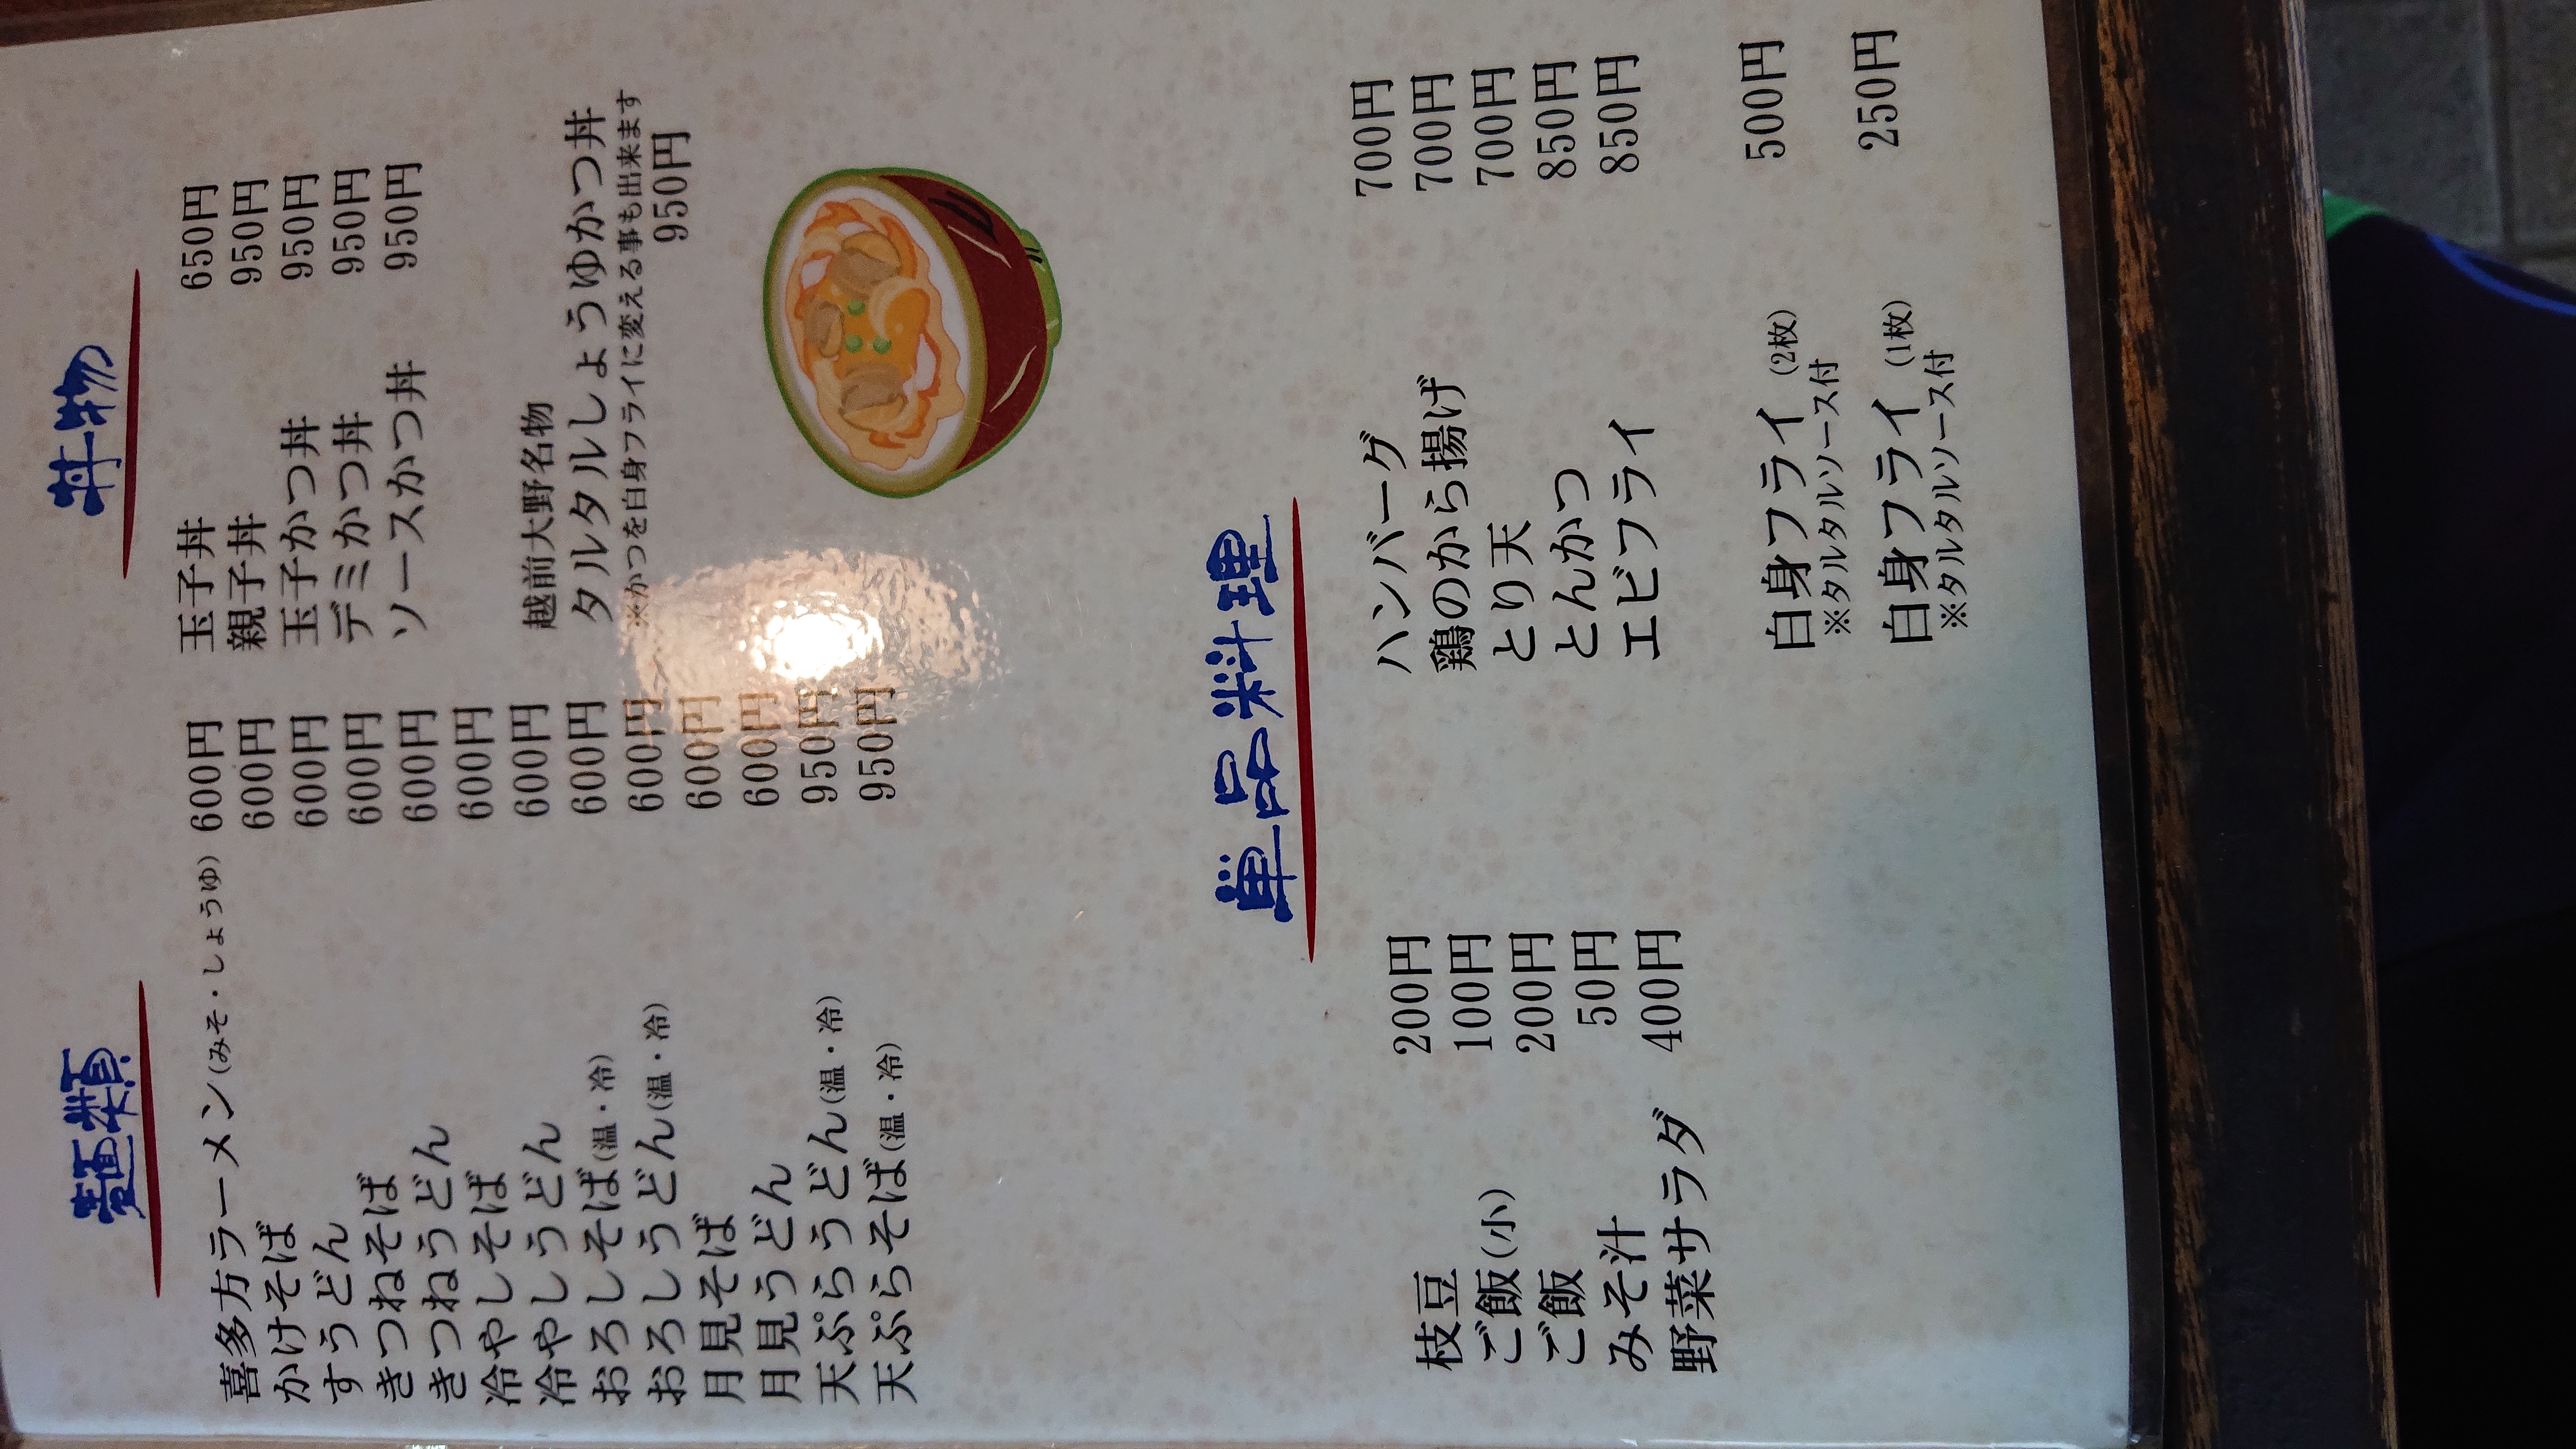 麺類
喜多方ラーメン(みそ・しょうゆ) 600円
かけそば 600円
すうどん 600円
きつねそば 600円
きつねうどん 600円
冷やしそば 600円
冷やしうどん 600円
おろしそば(温・冷) 600円
おろしうどん(温・冷) 600円
月見そば 600円
月見うどん 600円
天ぷらうどん(温・冷) 950円
天ぷらそば(温・冷) 950円
丼物
玉子丼 650円
親子丼 950円
玉子かつ丼 950円
デミかつ丼 950円
ソースかつ丼 950円
越前大野名物
タルタルしょうゆかつ丼
※かつを白身フライに変える事も出来ます
950円
単品料理
枝豆 200円
ご飯(小) 100円
ご飯 200円
みそ汁 50円
野菜サラダ 400円
ハンバーグ 700円
鶏のから揚げ 700円
とり天 700円
とんかつ 850円
エビフライ 850円
白身フライ (2枚) 500円
※タルタルソース付
白身フライ (1枚) 250円
※タルタルソース付